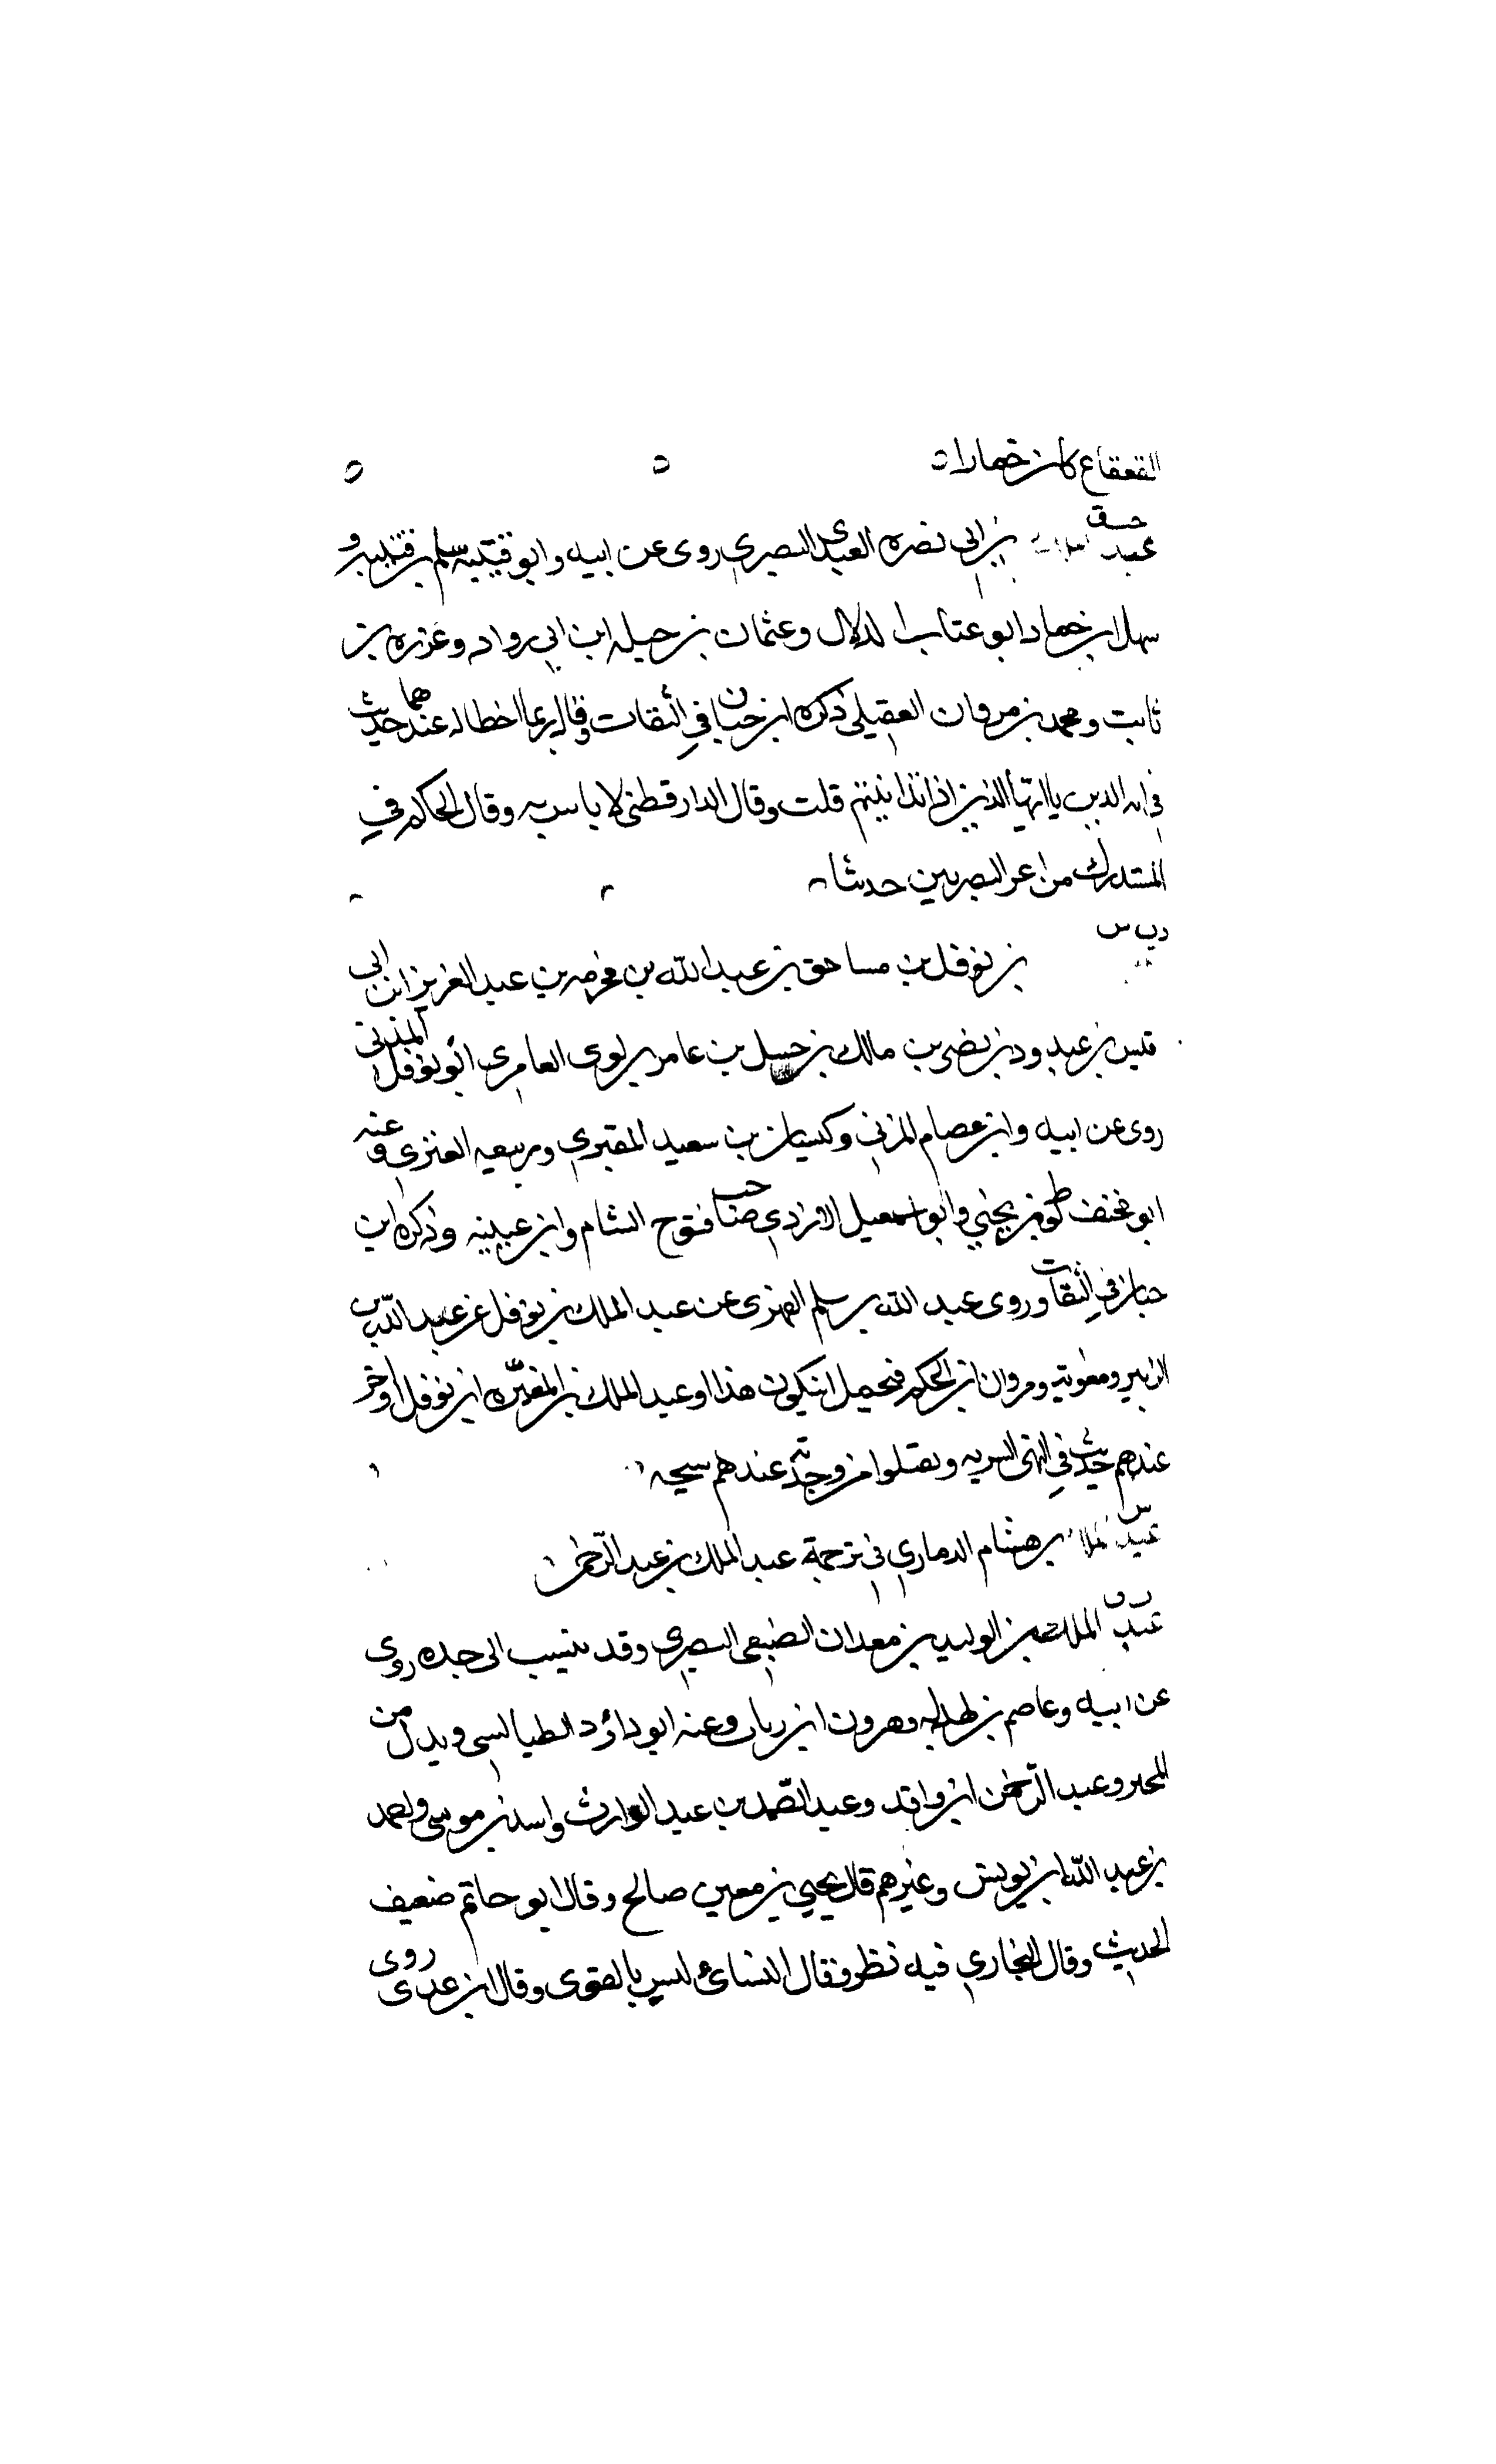 القعقاع كان خمارا
خت ق
عبد الملك بن ابي نضره العبدي البصري روى عن ابيه وابو قتيبه سلم بن قتيبه و
سهل ابن حماد ابو عتاب الدلال وعثمان بن جبله ابن ابي رواد وعزره بن
ثابت ومحمد بن مروان العقيلي ذكره ابن حبان في الثقات وقال ربما اخطا له عندهما حديث
في ايه الدين يا ايها الذين اذا تداينتم قلت وقال الدارقطني لا باس به وقال الحاكم في
المستدرك من اعز البصريين حديثا
د ت س
بن نوفل بن مساحق بن عبد الله بن مخرمه بن عبد العزيز ابن ابى
قيس بن عبد ود بن نضر بن مالك بن حسل بن عامر بن لوى العامرى ابو نوفل المدني
روى عن ابيه وابن عصام المزني وكيسان بن سعيد المقبري وربيعه العنزي وعنه
ابو مخنف لوط بن يحيي وابو اسمعيل الازدي صاحب فتوح الشام وابن عيينه وذكره ابن
حبان في الثقات وروى عبد الله بن سلم الفهرى عن عبد الملك بن نوفل عن عبد الله بن
الزبير ومعوية ومروان ابن الحكم فيحتمل ان يكون هذا او عبد الملك بن المغيره ابن نوفل او اخر
عندهم حديث في السريه وتقتلوا من وجدتم عندهم
س
عبد الملك بن هشام الدماري في ترجمة عبد الملك بن عبد الرحمن
ر ق
عبد الملك بن الوليد بن معدان الضبعي البصري وقد ينسب الى جده روى
عن ابيه وعاصم بن بهدلة وهرون ابن رياب وعنه ابو داؤد الطيالسي وبدل من
المحبر وعبد الرحمن ابن واقد وعبد الصمد بن عبد الوارث واسد بن موسى واحمد
بن عبد الله ابن يونس وغيرهم قال يحيي بن معين صالح وقال ابو حاتم ضعيف
الحديث وقال البخاري فيه نظر وقال النسائي ليس بالقوى وقال ابن عدى روى